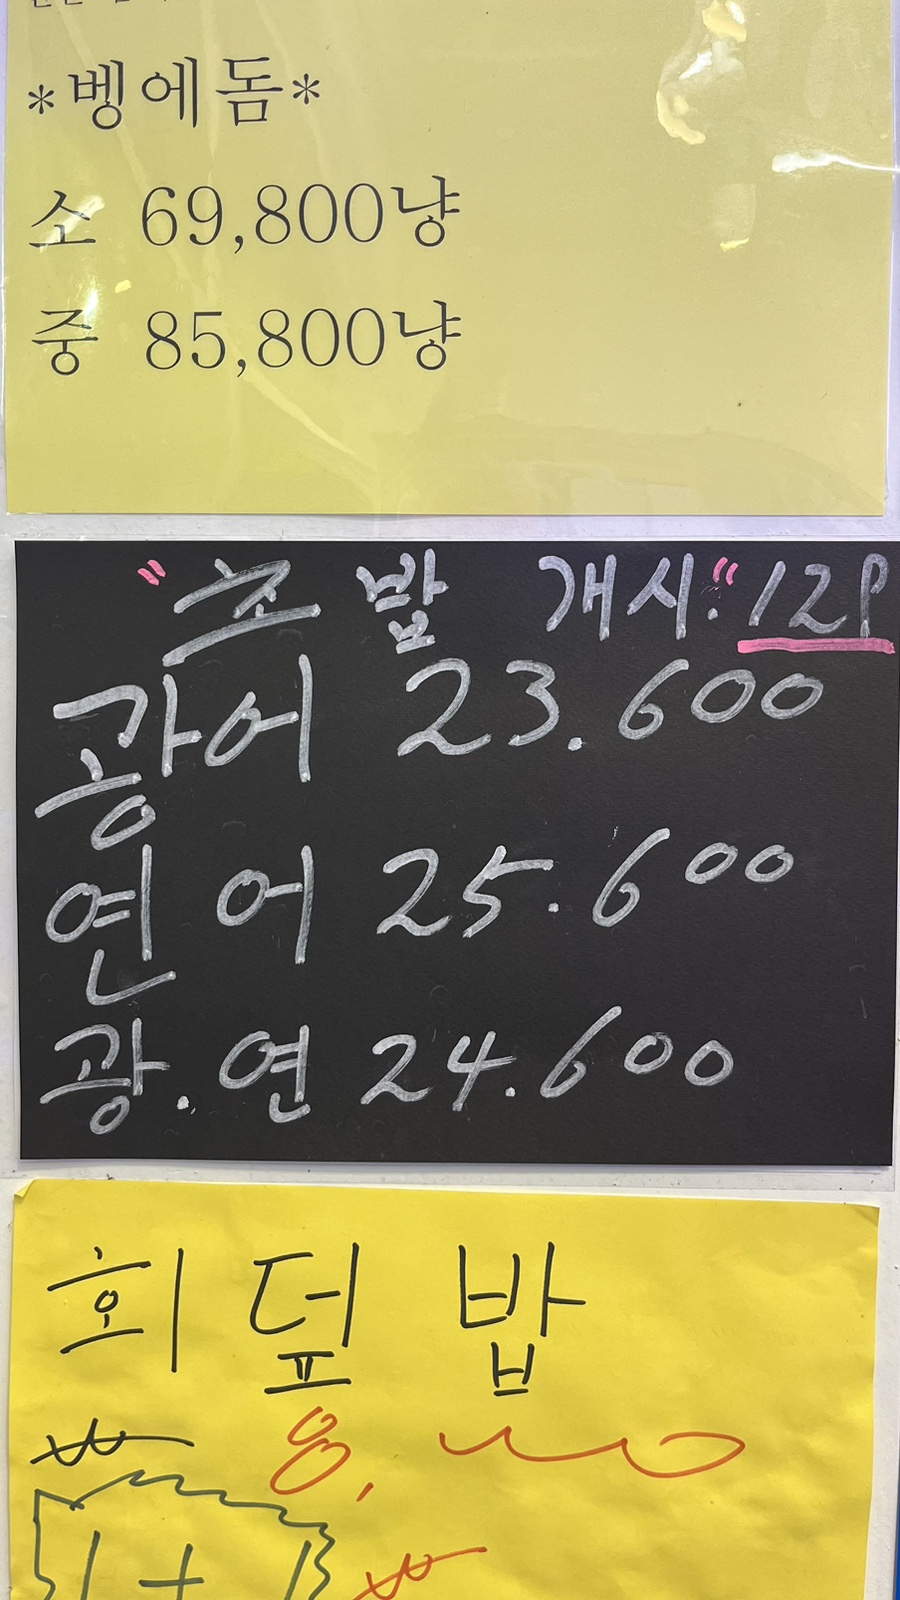 *벵에돔*
소 69,800냥
중 85,800냥
"초밥 개시." 12P
광어 23.600
연어 25.600
광.연 24.600
회덮밥
₩ 8,
1+1 ₩